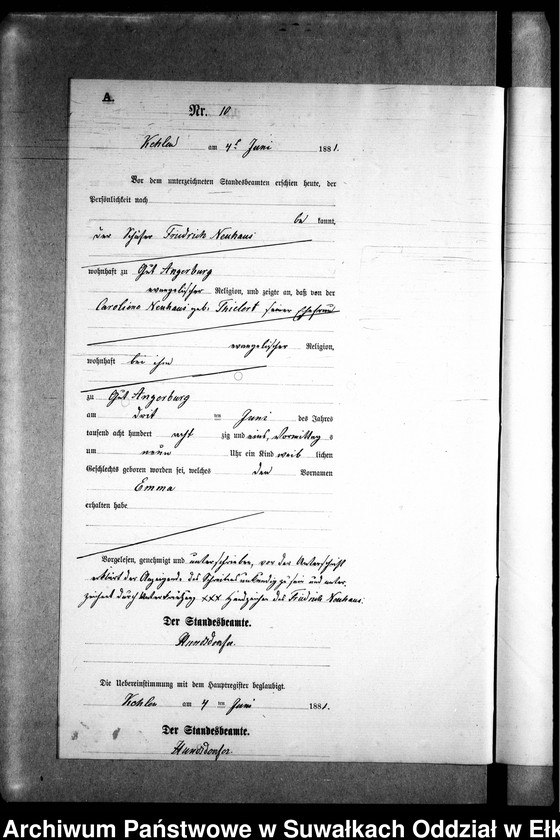 A.
Nr. 10
Kehlen am 4t Juni 1881.
Vor dem unterzeichneten Standesbeamten erschien heute, der
Persönlichkeit nach
be kannt,
der Schäfer Friedrich Neuhaus
wohnhaft zu Gut Angerburg
evangelischer Religion, und zeigte an, daß von der
Caroline Neuhaus geb. Thielert seiner Ehefrau
evangelischer Religion,
wohnhaft bei ihm
zu Gut Angerburg
am drit ten Juni des Jahres
tausend acht hundert acht zig und eins, Vormittag s
um neun Uhr ein Kind weib lichen
Geschlechts geboren worden sei, welches den Vornamen
Emma
erhalten habe
Vorgelesen, genehmigt und unterschrieben, vor der Unterschrift
erklärt der Anzeigende des Schreibens unkundig zu sein und unter
zeichnet durch Unterkreuzung xxx Handzeichen des Friedrich Neuhaus.
Der Standesbeamte.
Die Uebereinstimmung mit dem Hauptregister beglaubigt.
Kehlen am 4 ten Juni 1881.
Der Standesbeamte.
Archiwum Państwowe w Suwałkach Oddział w Ełk